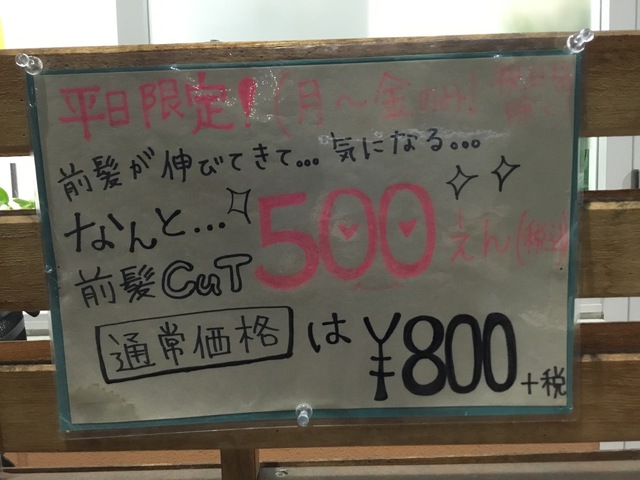 平日限定!(月〜金のみ!
前髪が伸びてきて...気になる...
なんと...
前髪CuT 500えん(税込)
通常価格 は ¥800+税